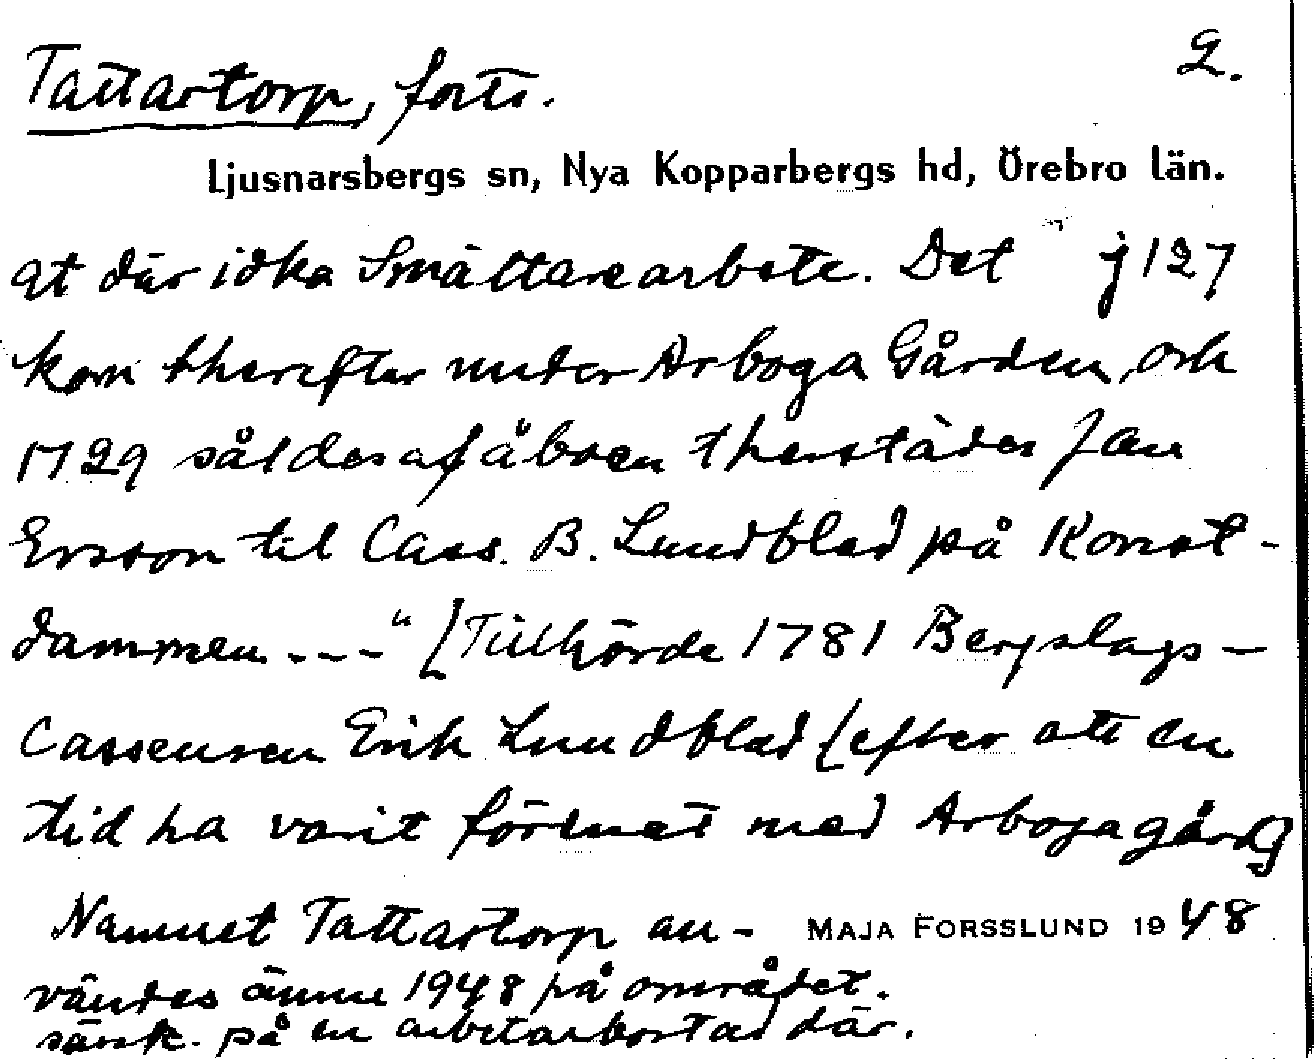 Tattartorp, forts.
2.
Ljusnarsbergs sn, Nya Kopparbergs hd, Örebro län.
at där idka Smältarearbete. Det j 127
kom therefter under Arboga Gården, och
1729 såldes af åboen therstädes Jan
Ersson til Cass. B. Lundblad på Konst-
dammen - - -" [Tillhörde 1781 Bergslags-
Casseuren Erik Lundblad [efter att en
tid ha varit förenat med Arbogagård]
Namnet Tattartorp an-
MAJA FORSSLUND 1948
vändes ännu 1948 på området.
särsk. på en arbetarbostad där.